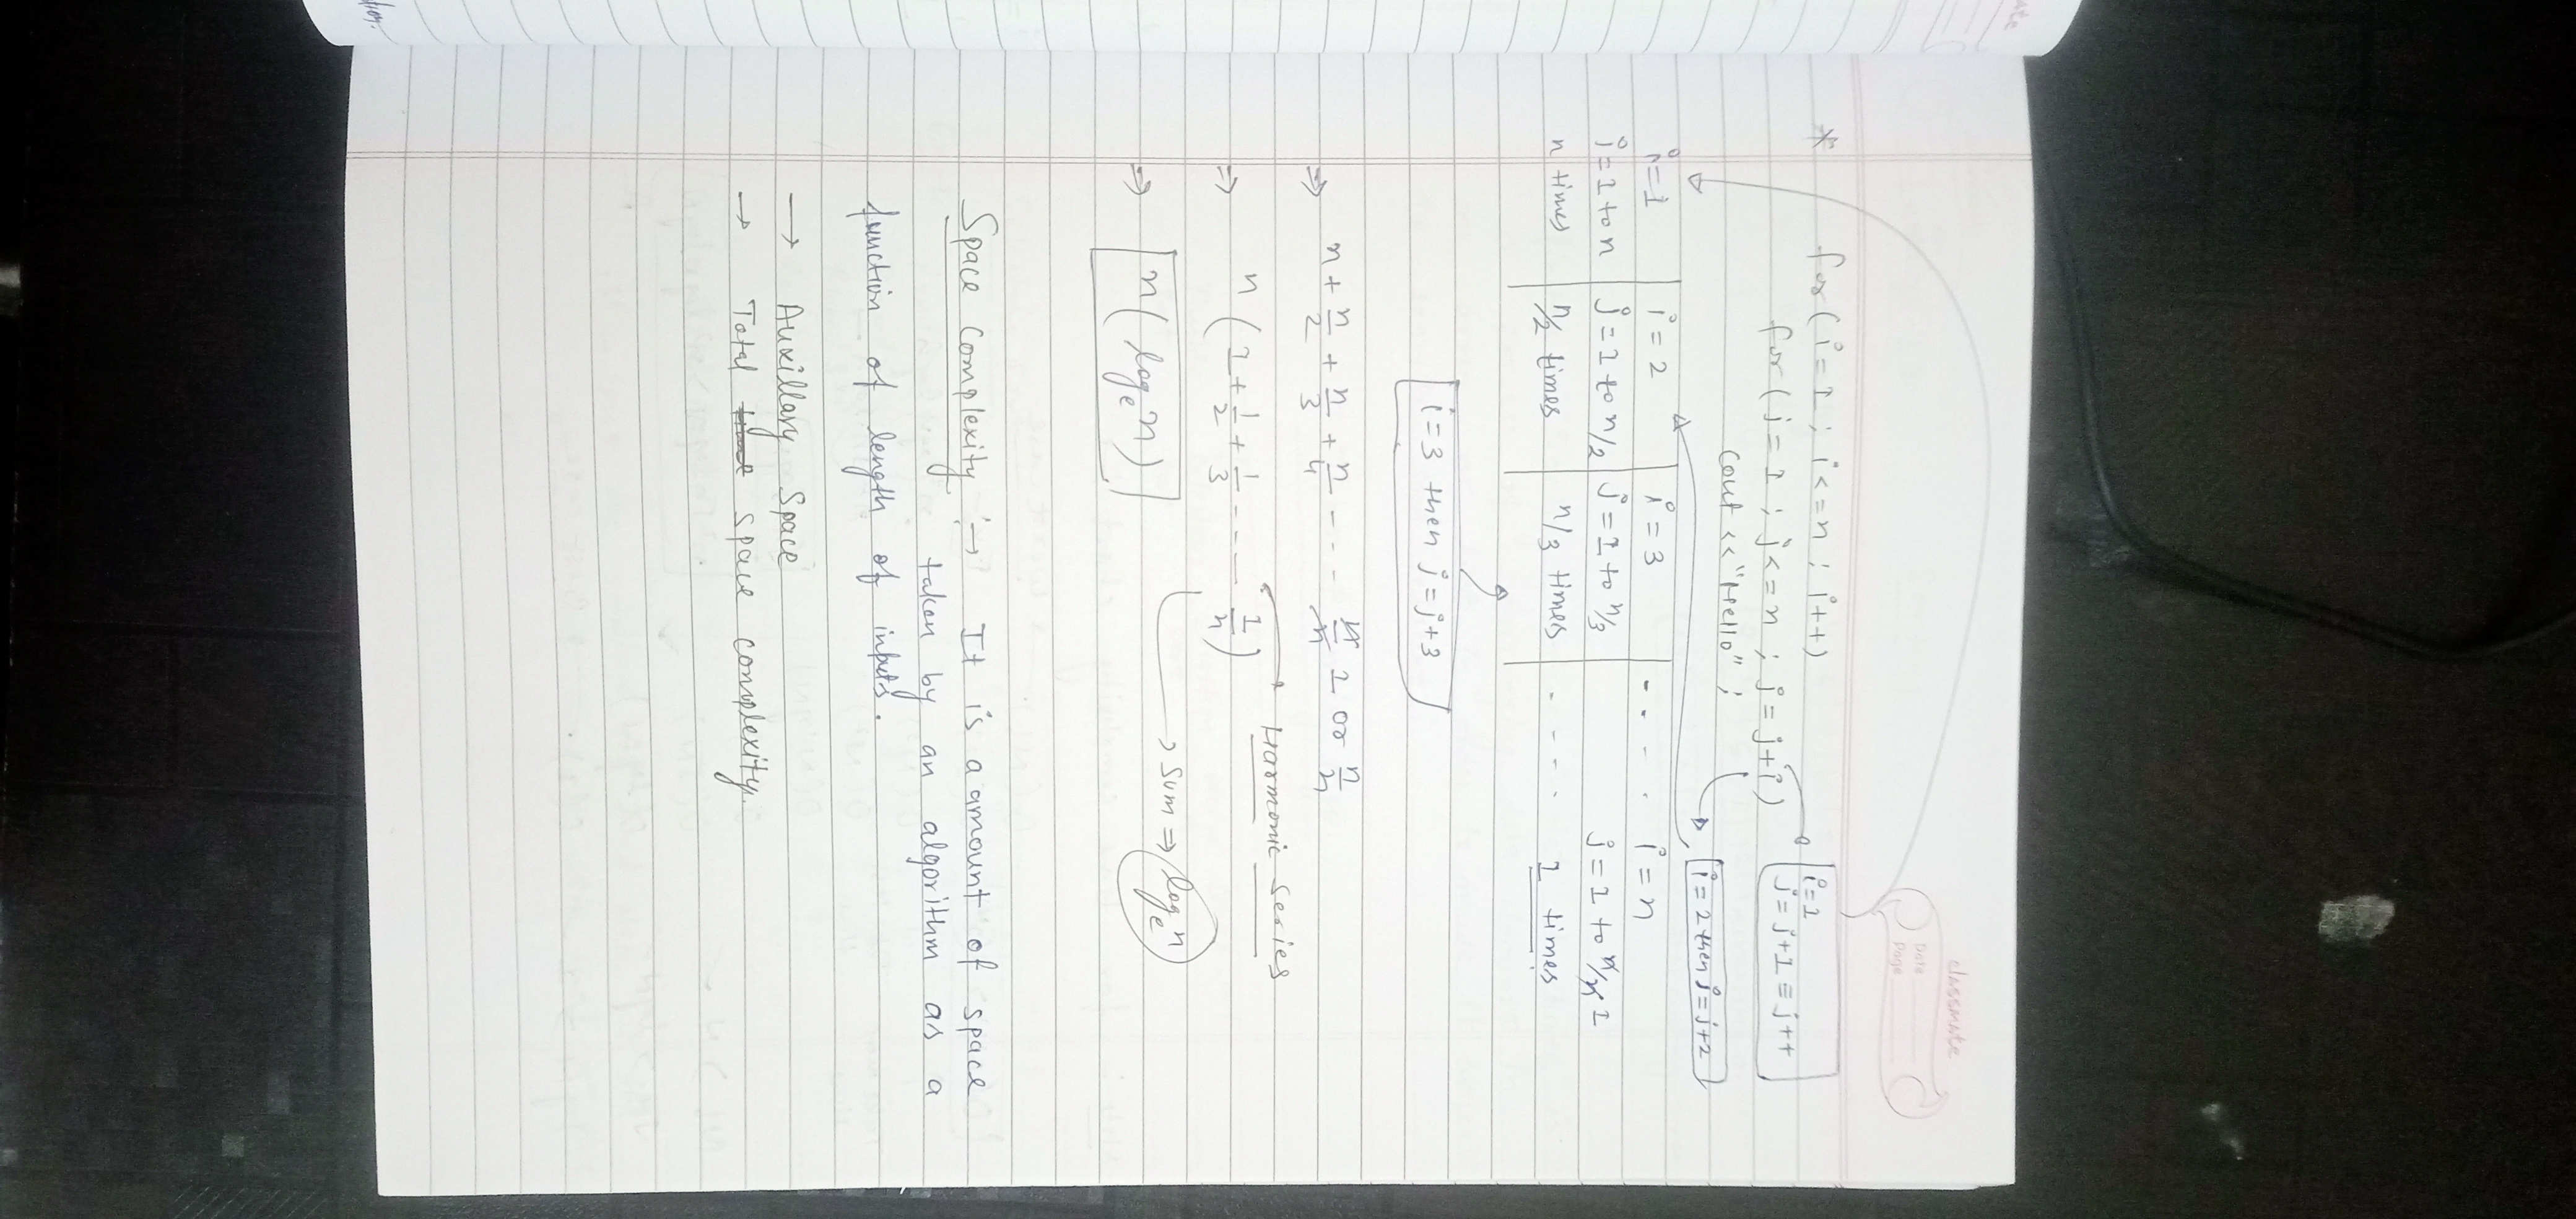 classmate
Date
Page
* for ( i = 1 ; i <= n ; i++)
for ( j = 1 ; j <= n ; j = j+i )
cout << "Hello" ;
i=1
j = j+1 ≡ j++
i = 2 then j = j+2
i=1 | i = 2 | i = 3 | - - - - . i = n
j = 1 to n | j = 1 to n/2 | j = 1 to n/3 | j = 1 to n/n 1
n times | n/2 times | n/3 times | - - - - . 1 times
i = 3 then j = j+3
⇒ n + n/2 + n/3 + n/4 - - - - n/n 1 or n/n
⇒ n ( 1 + 1/2 + 1/3 - - - - 1/n ) → Harmonic Series
→ Sum ⇒ logₑn
⇒ n ( logₑn )
Space Complexity :→ It is a amount of space
taken by an algorithm as a
function of length of inputs.
→ Auxillary Space
→ Total time space complexity.